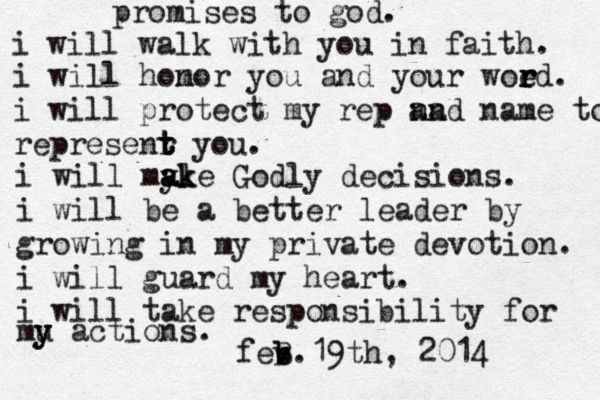 promises to god.
i will walk with you in faith.
i will honor you and your word.
i will protect my rep and name to
represent you.
i will make Godly decisions.
i will be a better leader by
growing in my private devotion.
i will guard my heart.
i will take responsibility for
my actions.
feb. 19th, 2014